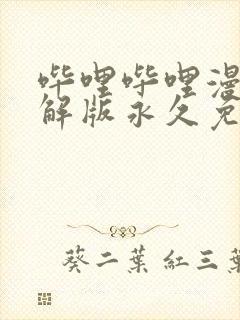 哔哩哔哩漫
解版永久免
葵二葉 紅三葉